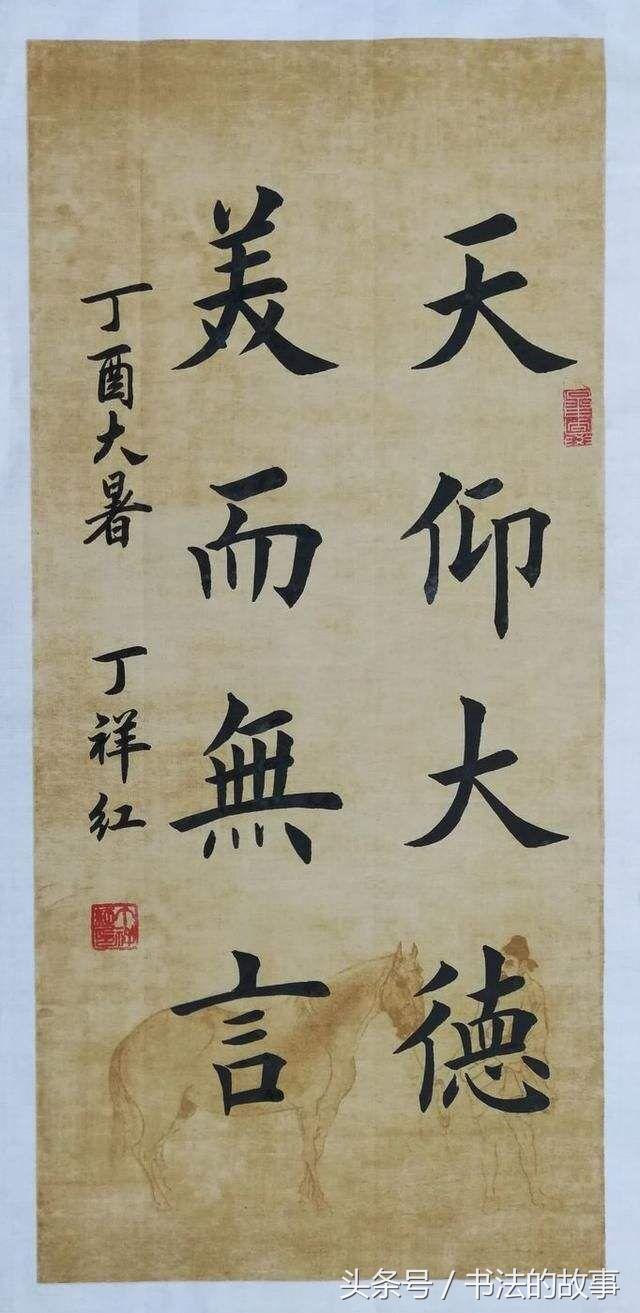 天仰大德
美而無言
丁酉大暑 丁祥红
头条号 / 书法的故事